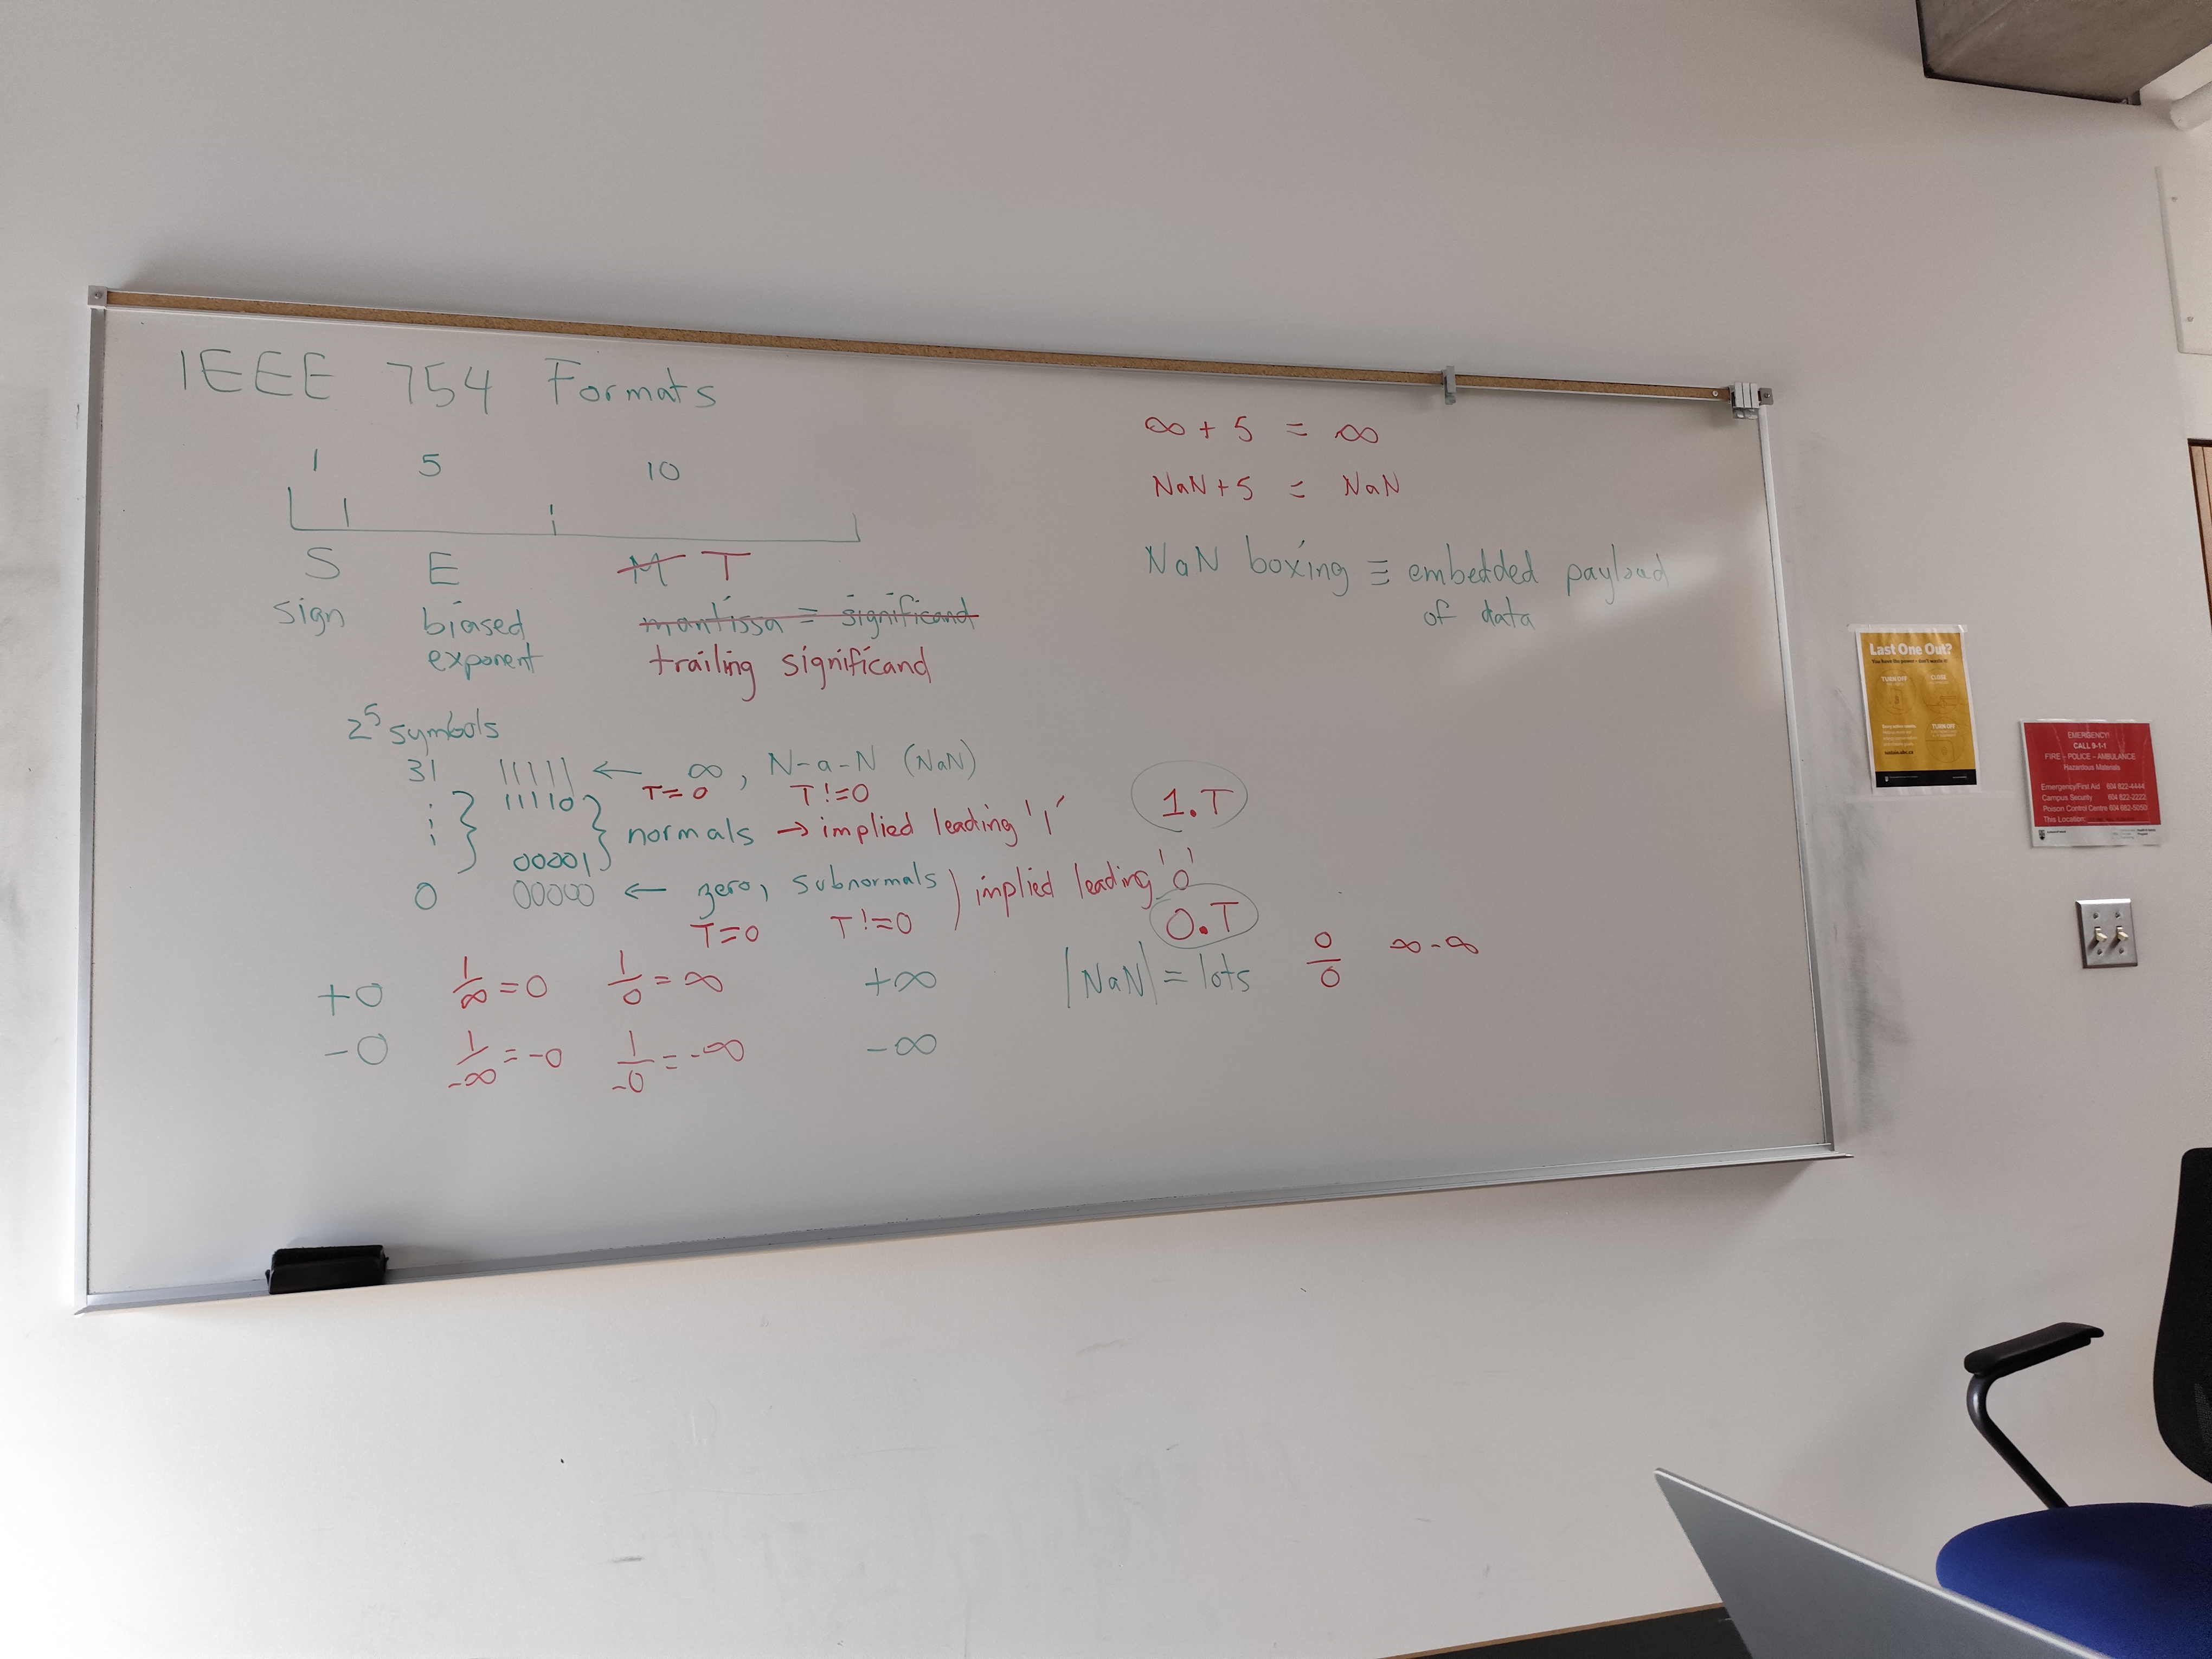 IEEE 754 Formats
1 5 10
S E M T
sign biased mantissa = significand
exponent trailing significand
2⁵ symbols
31 11111 ← ∞, N-a-N (NaN)
T=0 T!=0
11110
normals → implied leading '1' 1.T
00001
0 00000 ← zero, subnormals ) implied leading '0'
T=0 T!=0 0.T
+0 1/∞ = 0 1/0 = ∞ +∞ |NaN| = lots 0/0 ∞-∞
-0 1/-∞ = -0 1/-0 = -∞ -∞
∞ + 5 = ∞
NaN + 5 = NaN
NaN boxing ≡ embedded payload
of data
Last One Out?
TURN OFF CLOSE
TURN OFF
EMERGENCY!
CALL 9-1-1
FIRE - POLICE - AMBULANCE
Hazardous Materials
Emergency/First Aid 604 822-4444
Campus Security 604 822-2222
Poison Control Centre 604 682-5050
This Location: